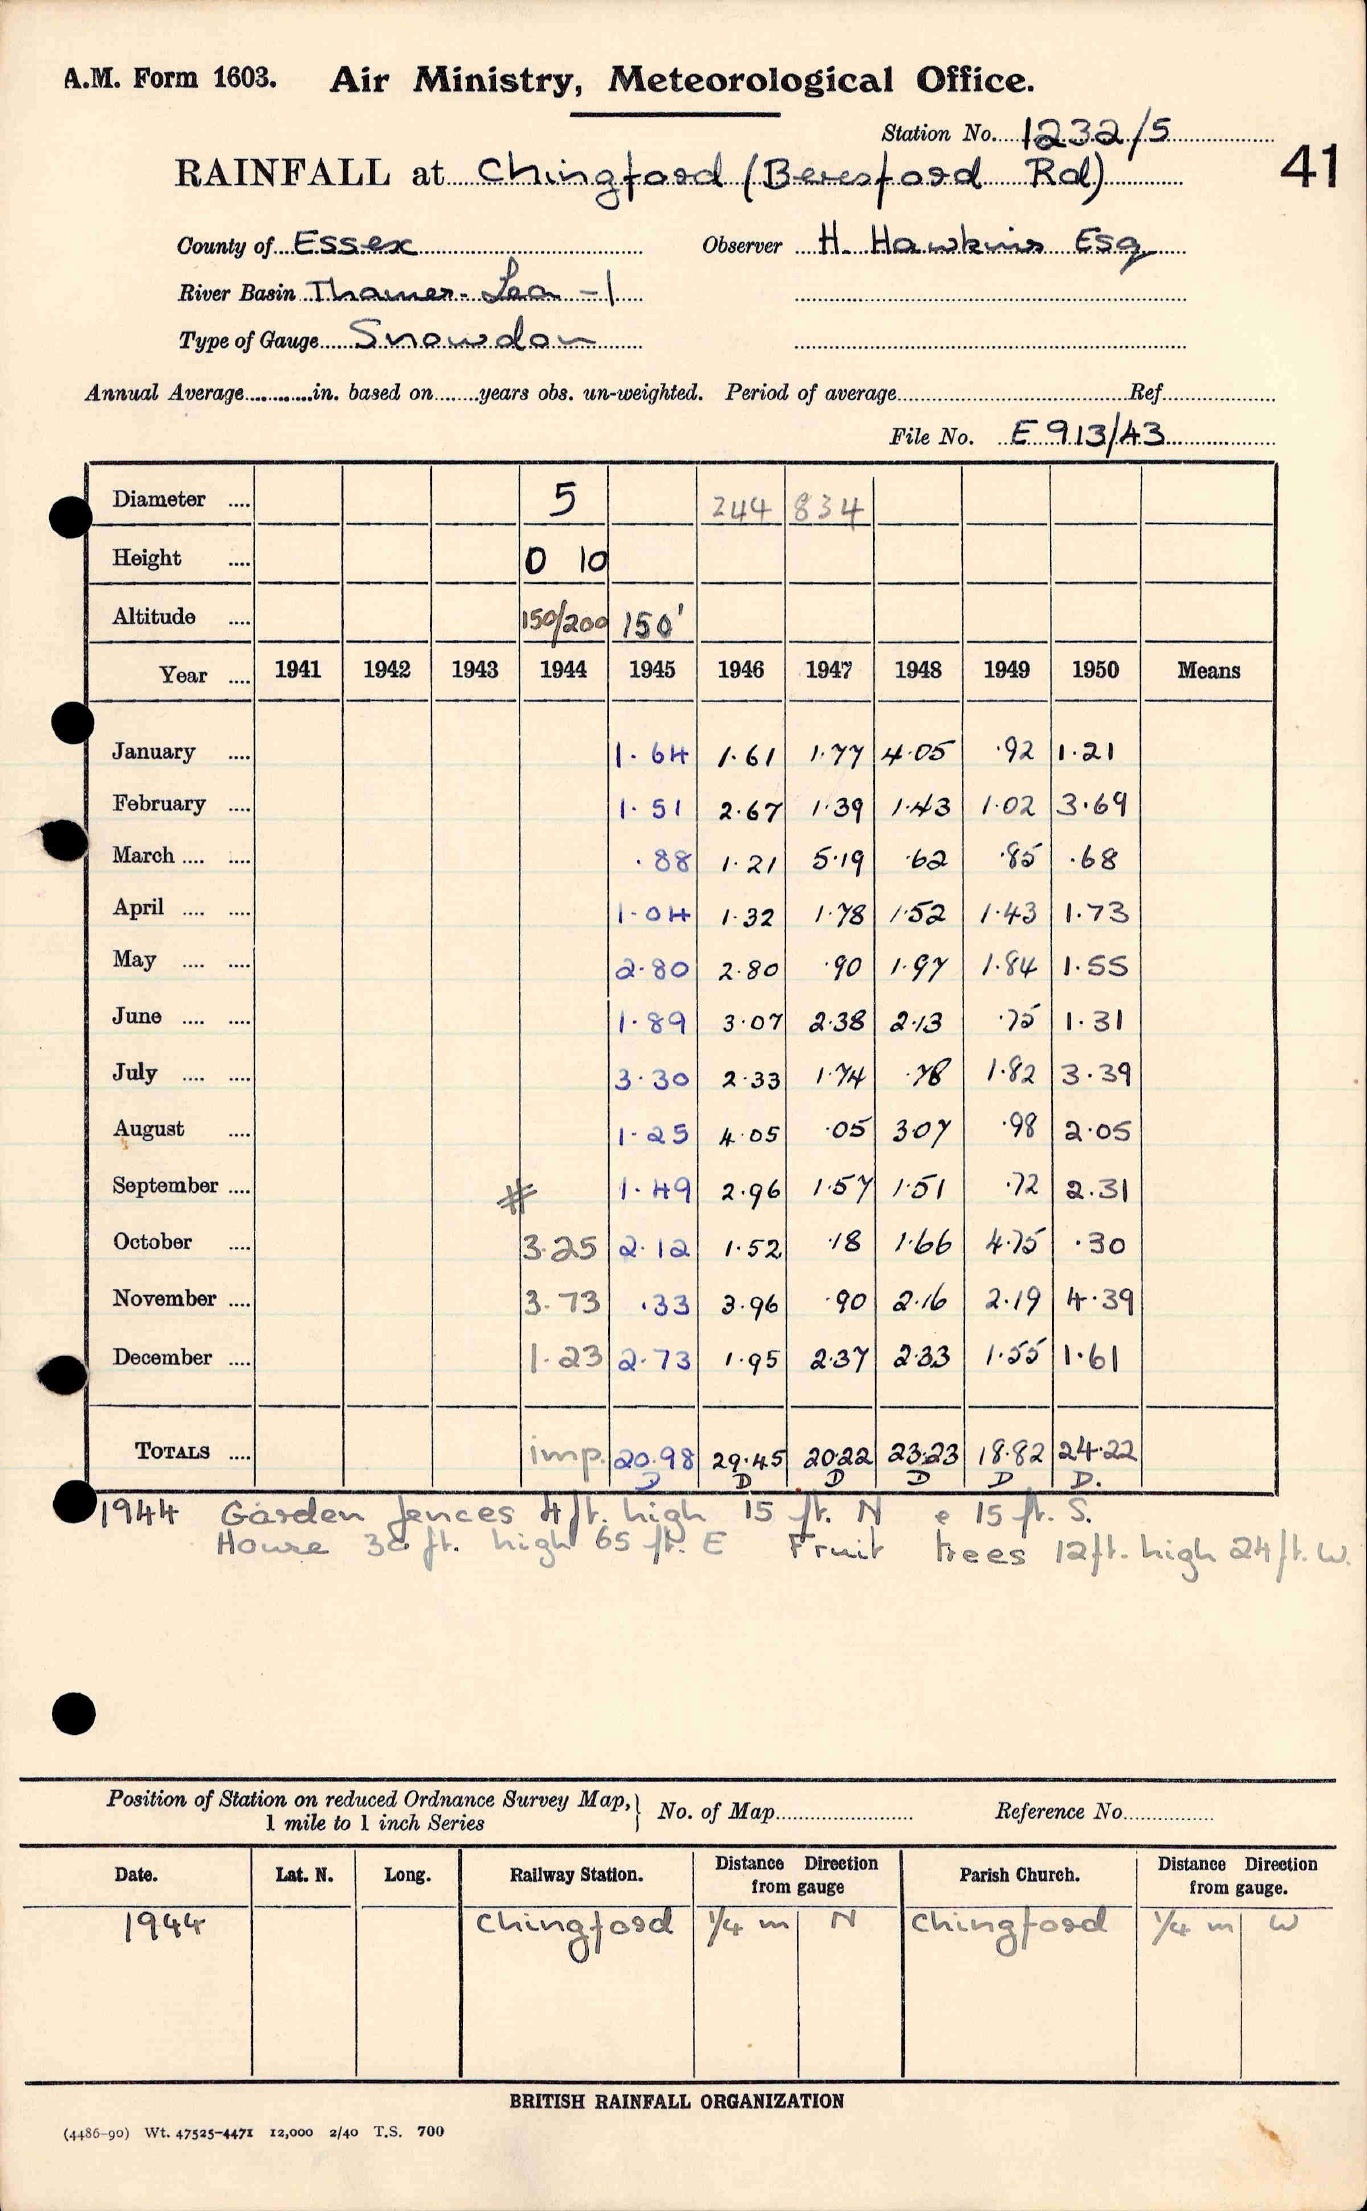 A.M. Form 1603. Air Ministry, Meteorological Office.
Station No. 1232/5
41
RAINFALL at Chingford (Beresford Rd)
County of Essex Observer H. Hawkins Esq
River Basin Thames - Lea - 1
Type of Gauge Snowdon
Annual Average in. based on years obs. un-weighted. Period of average Ref.
File No. E 913/43
Diameter .... 5 244 834
Height .... 0 10
Altitude .... 150/200 150'
Year .... 1941 1942 1943 1944 1945 1946 1947 1948 1949 1950 Means
January .... 1.64 1.61 1.77 4.05 .92 1.21
February .... 1.51 2.67 1.39 1.43 1.02 3.69
March .... .... .88 1.21 5.19 .62 .85 .68
April .... .... 1.04 1.32 1.78 1.52 1.43 1.73
May .... .... 2.80 2.80 .90 1.97 1.84 1.55
June .... .... 1.89 3.07 2.38 2.13 .75 1.31
July .... .... 3.30 2.33 1.74 .78 1.82 3.39
August .... 1.25 4.05 .05 3.07 .98 2.05
September .... # 1.49 2.96 1.57 1.51 .72 2.31
October .... 3.25 2.12 1.52 .18 1.66 4.75 .30
November .... 3.73 .33 3.96 .90 2.16 2.19 4.39
December .... 1.23 2.73 1.95 2.37 2.33 1.55 1.61
TOTALS .... imp. 20.98 29.45 20.22 23.23 18.82 24.22
D D D D D D.
1944 Garden fences 4 ft. high 15 ft. N e 15 ft. S.
House 30 ft. high 65 ft. E Fruit trees 12 ft. high 24 ft. W.
Position of Station on reduced Ordnance Survey Map, 1 mile to 1 inch Series } No. of Map Reference No.
Date. Lat. N. Long. Railway Station. Distance Direction from gauge Parish Church. Distance Direction from gauge.
1944 Chingford 1/4 m N Chingford 1/4 m W
BRITISH RAINFALL ORGANIZATION
(4486-90) Wt. 47525-4471 12,000 2/40 T.S. 700